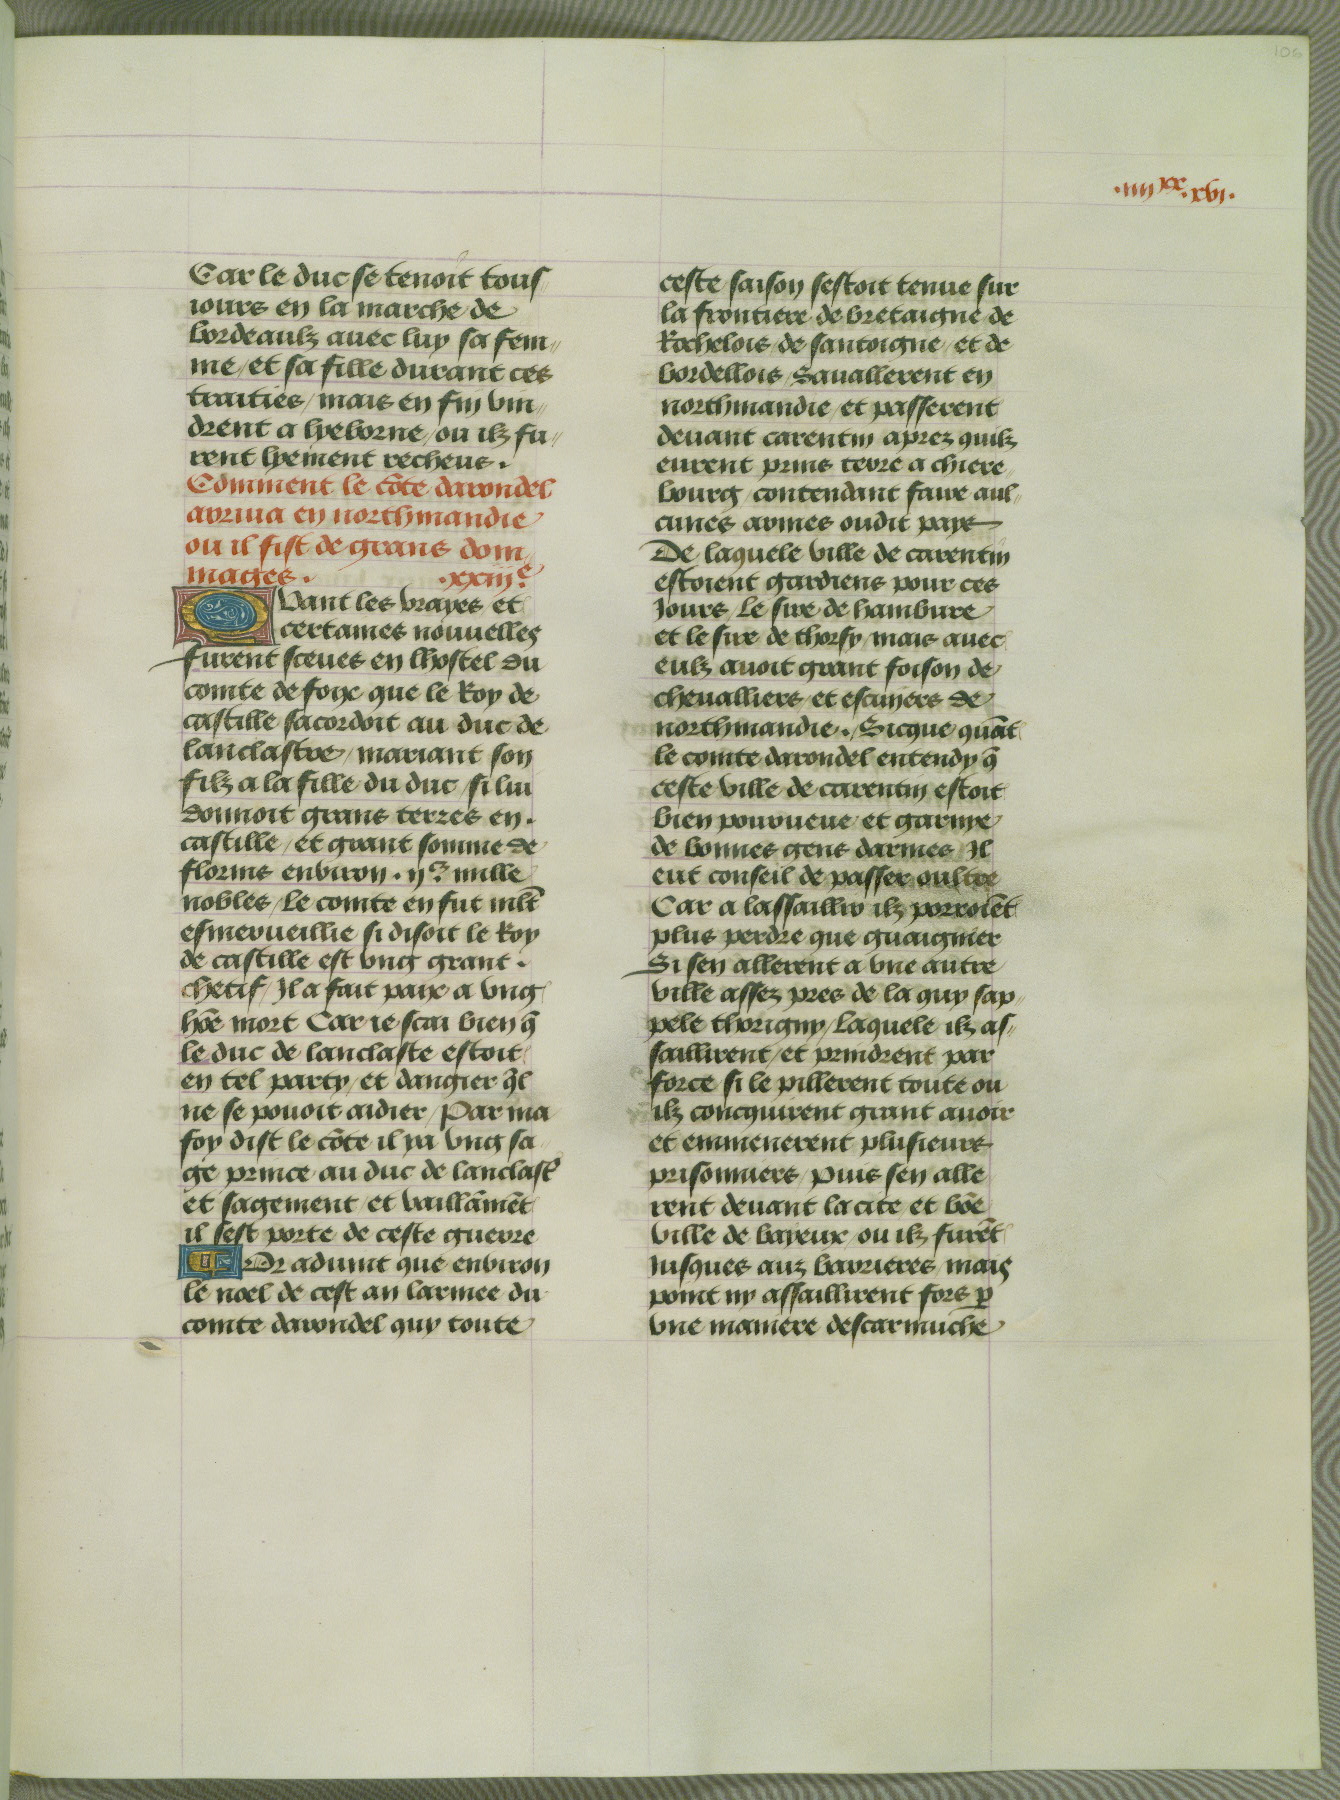 106
.iiii xx .xvi.
Car le duc se tenoit tous
iours en la marche de
bordeaulz auec luy sa fem„
me / et sa fille durant ces
traities / mais en fin vin„
drent a lyeborne / ou ilz fu„
rent lyement recheus .
Comment le cōte darondel
arriua en northmandie
ou il fist de grans dom„
mages . .xxiiij.e
Qvant les vrayes et
certaines nouuelles
furent sceues en lhostel du
comte de foix que le Roy de
castille sacordoit au duc de
lanclastre / mariant son
filz a la fille du duc / si lui
donnoit grans terres en .
castille / et grant somme de
florins enuiron . ij.c mille
nobles / Le comte en fut mlt̄
esmerueillie si disoit le Roy
de castille est vng grant .
chetif / Il a fait paix a vng
hōe mort Car ie scai bien q̄
le duc de lanclaste estoit
en tel party / et dangier q̄l
ne se pouoit aidier / Par ma
foy dist le cōte il ya vng sa„
ge prince au duc de lanclast'
et sagement et vaillāmēt
il sest porte de ceste guerre
Or aduint que enuiron
le noel de cest an larmee du
comte darondel quy toute
ceste saison sestoit tenue sur
la frontiere de bretaigne de
Rochelois / de santoigne / et de
bordellois / Sauallerent en
northmandie / et passerent
deuant carentin aprez quilz
eurent prins terre a chiere„
bourg / contendant faire aul„
cunes armes oudit pays
De laquele ville de carentin
estoient gardiens pour ces
Jours / Le sire de hambure
et le sire de thorsy / mais auec
eulz auoit grant foison de
cheualliers / et escuiers de
northmandie . / Sicque quāt
le comte darondel entendy q̄
ceste ville de carentin estoit
bien pourueue / et garnye
de bonnes gens darmes Il
eut conseil de passer oultre
Car a lassaillir ilz porroiēt
plus perdre que guaignier
Si sen allerent a vne autre
ville assez pres de la quy sap„
pele thorigny / Laquele ilz as„
saillirent / et prindrent par
force si le pillerent toute ou
ilz concquirent grant auoir
et emmenerent plusieurs
prisonniers / Puis sen alle
rent deuant la cite et bōe
ville de bayeux / ou ilz furēt
Jusques aux barrieres / mais
point ny assaillirent fors p̄
vne maniere descarmuche